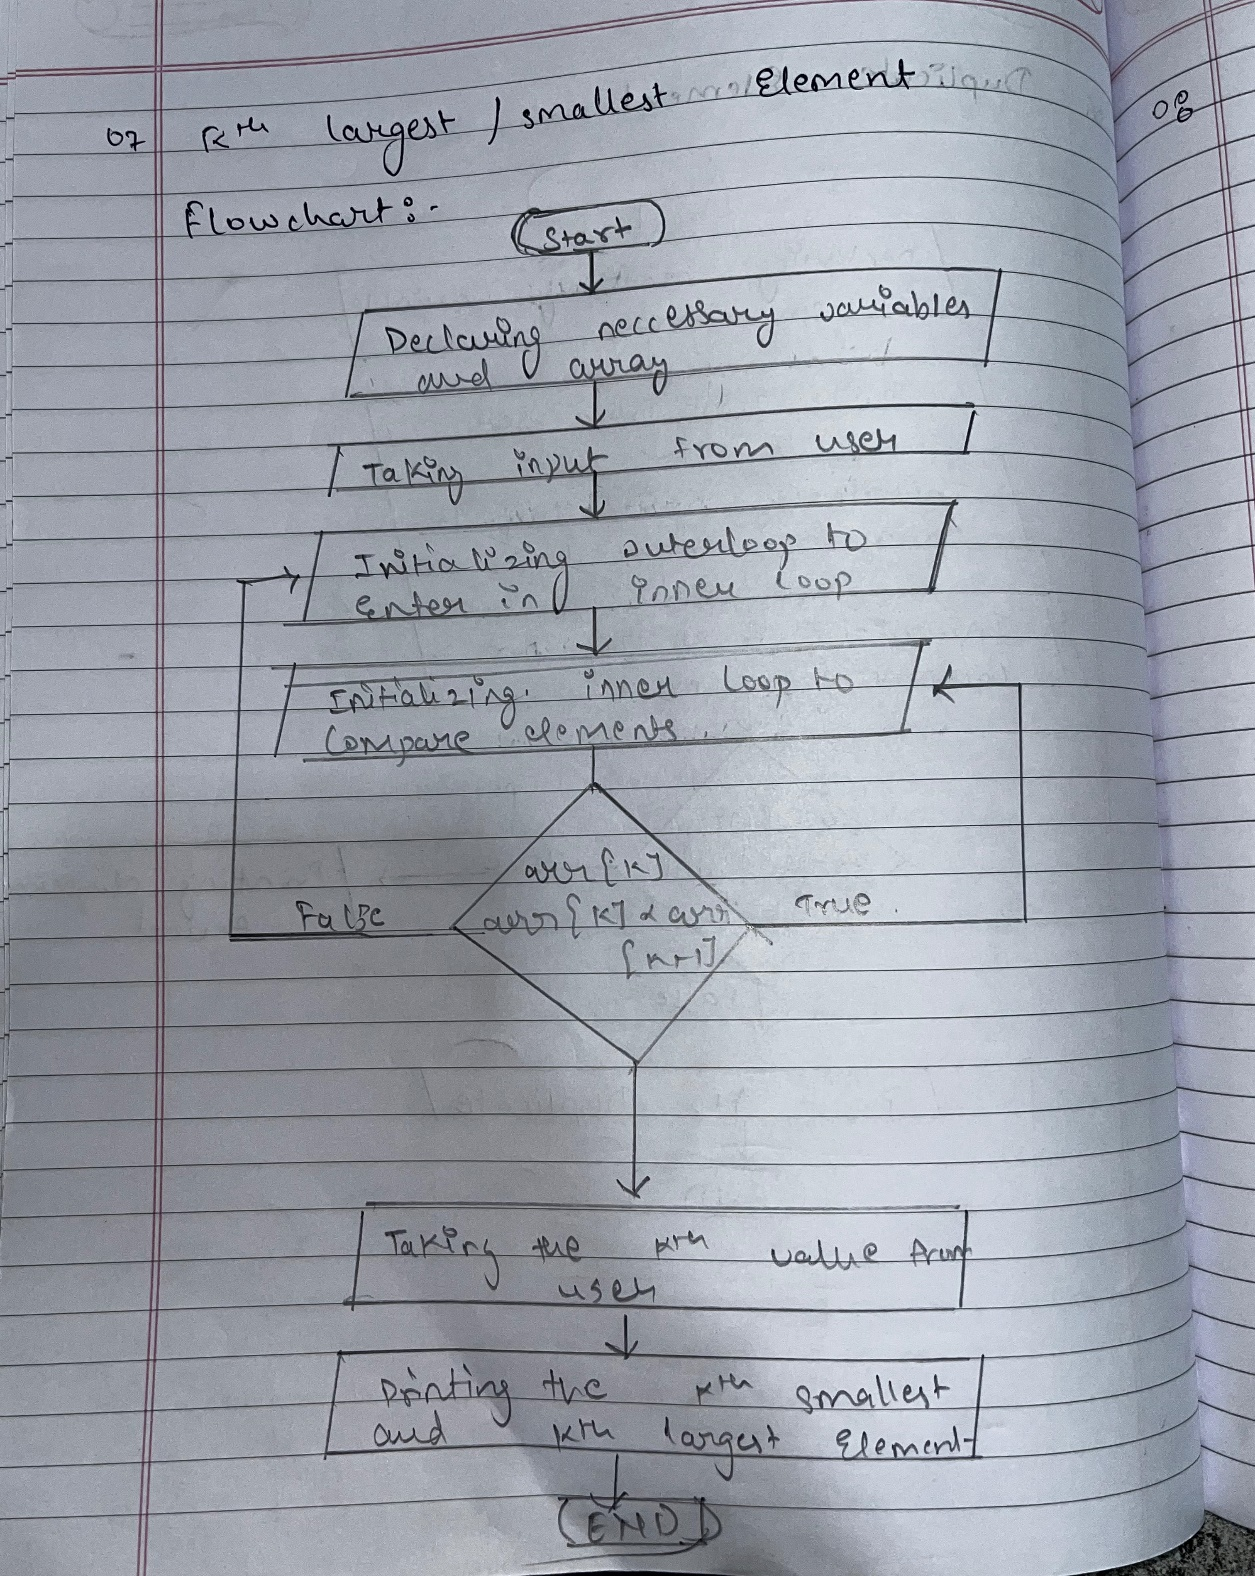 07 Kth largest / smallest Element
08
Flowchart:-
Start
Declaring neccessary variables
and array
Taking input from user
Initializing outerloop to
enter in inner loop
Initializing inner loop to
Compare elements.
arr[K]
arr[K] < arr
[K+1]
False
True
Taking the Kth value from
user
Printing the Kth smallest
and Kth largest Element
END